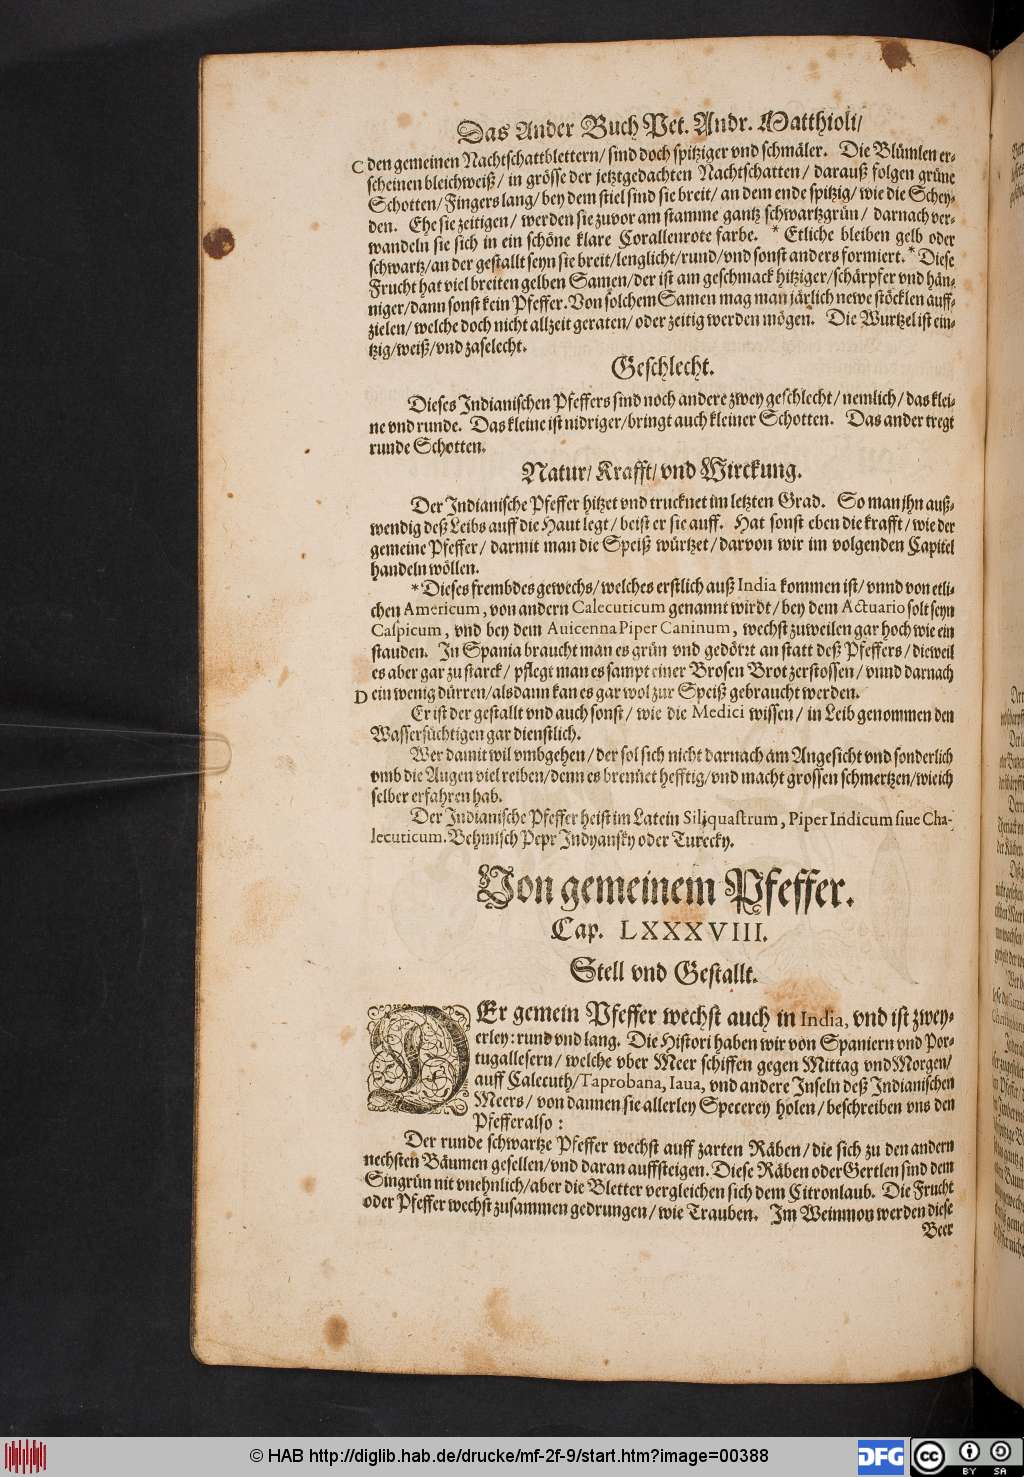 Das Ander Buch Pet. Andr. Matthioli/
C den gemeinen Nachtschattblettern/ sind doch spitziger vnd schmäler. Die Blümlen er-
scheinen bleichweiß/ in grösse der jetztgedachten Nachtschatten/ darauß folgen grüne
Schotten/ Fingers lang/ bey dem stiel sind sie breit/ an dem ende spitzig/ wie die Schey-
den. Ehe sie zeitigen/ werden sie zuvor am stamme gantz schwartzgrün/ darnach ver-
wandeln sie sich in ein schöne klare Corallenrote farbe. * Etliche bleiben gelb oder
schwartz/ an der gestallt seyn sie breit/ lenglicht/ rund/ vnd sonst anders formiert. * Diese
Frucht hat viel breiten gelben Samen/ der ist am geschmack hitziger/ schärpfer vnd hän-
niger/ dann sonst kein Pfeffer. Von solchem Samen mag man järlich newe stöcklen auff-
zielen/ welche doch nicht allzeit geraten/ oder zeitig werden mögen. Die Wurtzel ist ein-
tzig/ weiß/ vnd zaselecht.
Geschlecht.
Dieses Indianischen Pfeffers sind noch andere zwey geschlecht/ nemlich/ das klei-
ne vnd runde. Das kleine ist nidriger/ bringt auch kleiner Schotten. Das ander tregt
runde Schotten.
Natur/ Krafft/ vnd Wirckung.
Der Indianische Pfeffer hitzet vnd trucknet im letzten Grad. So man jhn auß-
wendig deß Leibs auff die Haut legt/ beist er sie auff. Hat sonst eben die krafft/ wie der
gemeine Pfeffer/ darmit man die Speiß würtzet/ darvon wir im volgenden Capitel
handeln wöllen.
* Dieses frembdes gewechs/ welches erstlich auß India kommen ist/ vnnd von etli-
chen Americum, von andern Calecuticum genannt wirdt/ bey dem Actuario solt seyn
Caspicum, vnd bey dem Auicenna Piper Caninum, wechst zuweilen gar hoch wie ein
stauden. In Spania braucht man es grün vnd gedörrt an statt deß Pfeffers/ dieweil
es aber gar zu starck/ pflegt man es sampt einer Brosen Brot zerstossen/ vnnd darnach
D ein wenig dürren/ alsdann kan es gar wol zur Speiß gebraucht werden.
Er ist der gestallt vnd auch sonst/ wie die Medici wissen/ in Leib genommen den
Wassersüchtigen gar dienstlich.
Wer damit wil vmbgehen/ der sol sich nicht darnach am Angesicht vnd sonderlich
vmb die Augen viel reiben/ denn es brennet hefftig/ vnd macht grossen schmertzen/ wie ich
selber erfahren hab.
Der Indianische Pfeffer heist im Latein Siliquastrum, Piper Indicum siue Cha-
lecuticum. Behmisch Pepr Indyansky oder Turecky.
Von gemeinem Pfeffer.
Cap. LXXXVIII.
Stell vnd Gestallt.
DEr gemein Pfeffer wechst auch in India, vnd ist zwey-
erley: rund vnd lang. Die Histori haben wir von Spaniern vnd Por-
tugallesern/ welche vber Meer schiffen gegen Mittag vnd Morgen/
auff Calecuth/ Taprobana, Iaua, vnd andere Inseln deß Indianischen
Meers/ von dannen sie allerley Specerey holen/ beschreiben vns den
Pfeffer also:
Der runde schwartze Pfeffer wechst auff zarten Räben/ die sich zu den andern
nechsten Bäumen gesellen/ vnd daran auffsteigen. Diese Räben oder Gertlen sind dem
Singrün nit vnehnlich/ aber die Bletter vergleichen sich dem Citronlaub. Die Frucht
oder Pfeffer wechst zusammen gedrungen/ wie Trauben. Im Weinmon werden diese
Beer
© HAB http://diglib.hab.de/drucke/mf-2f-9/start.htm?image=00388
DFG
cc BY SA